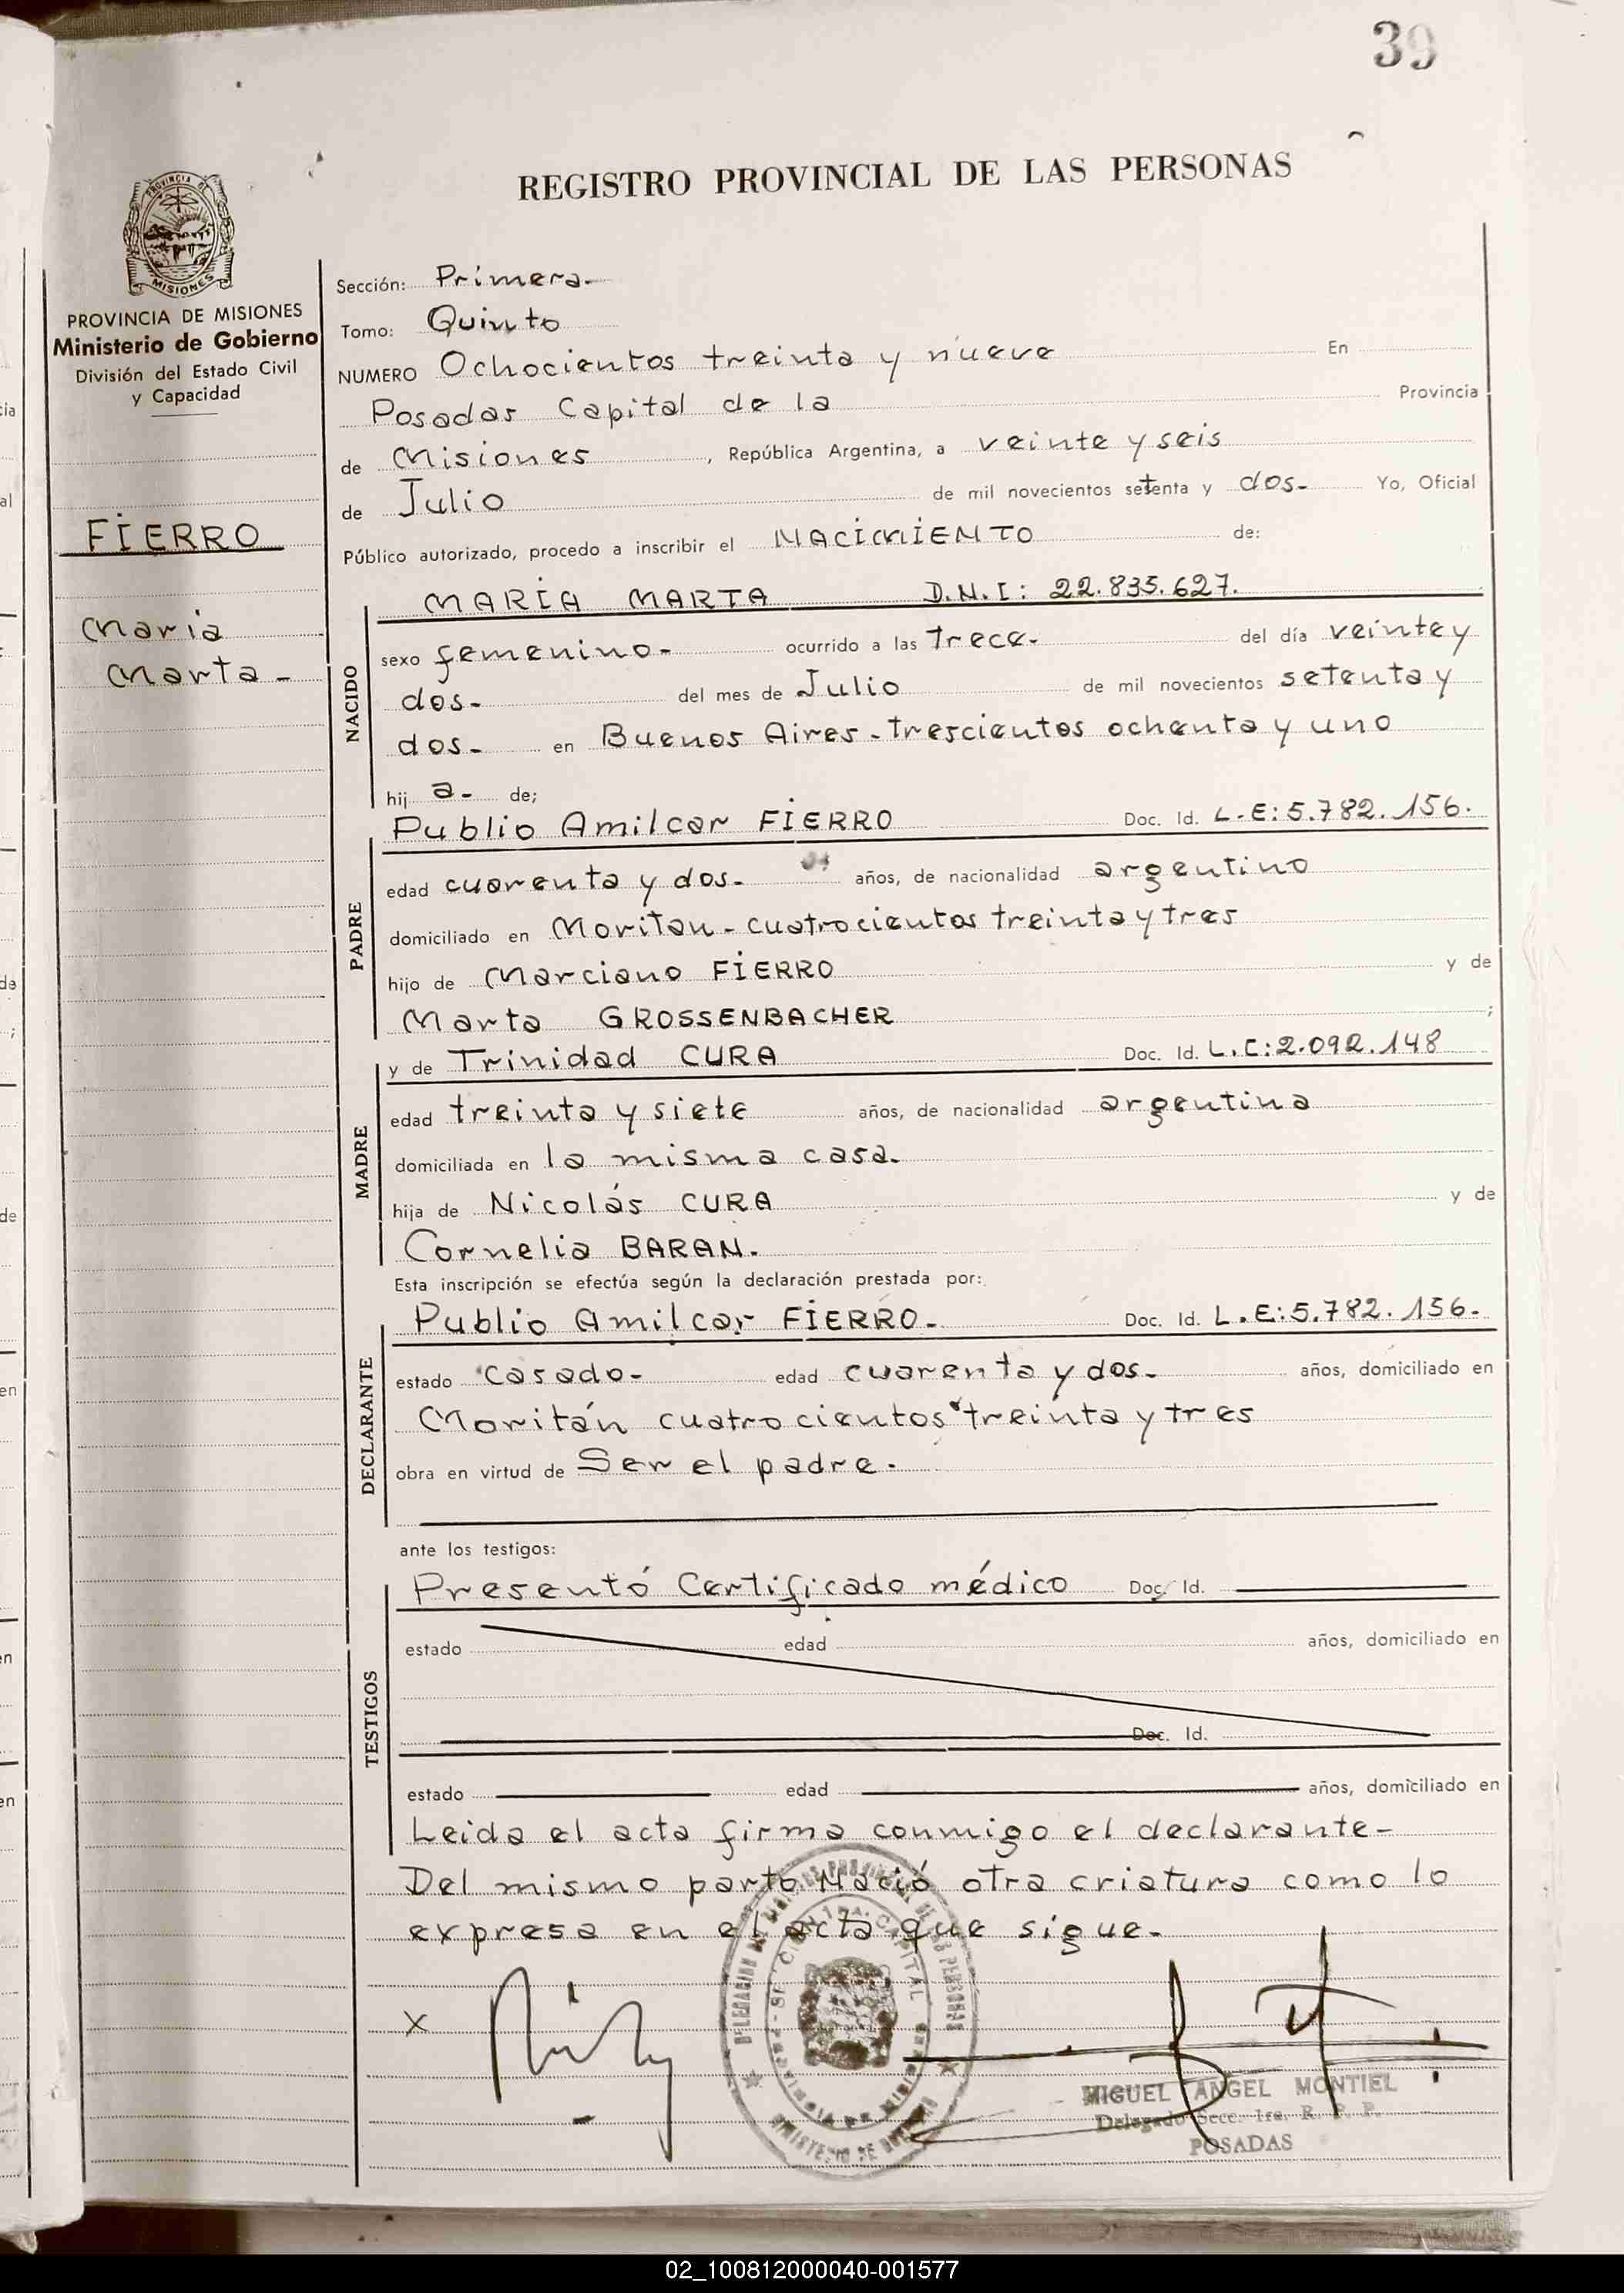 39
REGISTRO PROVINCIAL DE LAS PERSONAS
PROVINCIA DE
MISIONES
PROVINCIA DE MISIONES
Ministerio de Gobierno
División del Estado Civil
y Capacidad
FIERRO
Maria
Marta -
Sección: Primera-
Tomo: Quinto
NUMERO Ochocientos treinta y nueve En
Posadas Capital de la Provincia
de Misiones , República Argentina, a veinte y seis
de Julio de mil novecientos setenta y dos- Yo, Oficial
Público autorizado, procedo a inscribir el NACIMIENTO de:
MARÍA MARTA D.N.I: 22.835.627.
NACIDO
sexo femenino- ocurrido a las Trece- del día veinte y
dos- del mes de Julio de mil novecientos setenta y
dos- en Buenos Aires - trescientos ochenta y uno
hij a- de;
Publio Amilcar FIERRO Doc. Id. L.E: 5.782.156.
PADRE
edad cuarenta y dos- años, de nacionalidad argentino
domiciliado en Moritan - cuatrocientos treinta y tres
hijo de Marciano FIERRO y de
Marta GROSSENBACHER ;
y de Trinidad CURA Doc. Id. L.C: 2.092.148
MADRE
edad treinta y siete años, de nacionalidad argentina
domiciliada en la misma casa.
hija de Nicolás CURA y de
Cornelia BARAN.
Esta inscripción se efectúa según la declaración prestada por:
Publio Amilcar FIERRO- Doc. Id. L.E: 5.782.156-
DECLARANTE
estado casado- edad cuarenta y dos- años, domiciliado en
Moritán cuatrocientos treinta y tres
obra en virtud de Ser el padre.
ante los testigos:
Presentó Certificado médico Doc. Id.
TESTIGOS
estado edad años, domiciliado en
Doc. Id.
estado edad años, domiciliado en
Leida el acta firma conmigo el declarante-
Del mismo parto Nació otra criatura como lo
expresa en el acta que sigue-
X
MIGUEL ANGEL MONTIEL
Delegado Secc. 1ra. R. P. P.
POSADAS
02_100812000040-001577